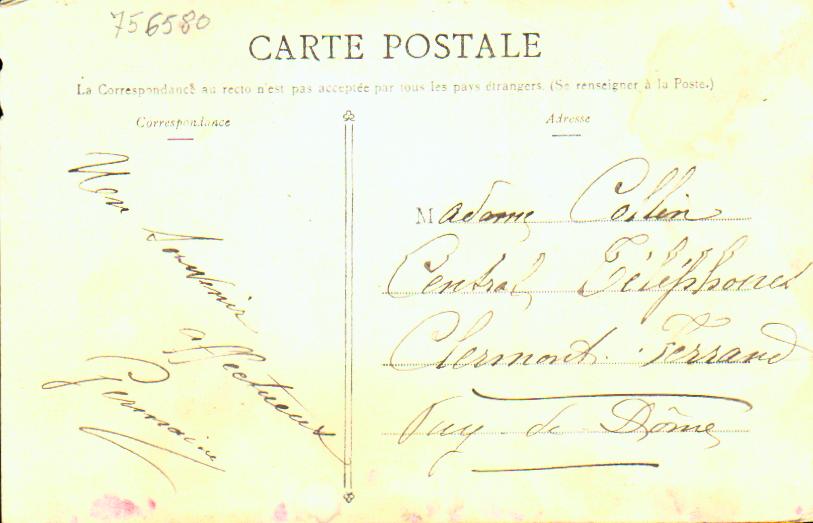 756580
CARTE POSTALE
La Correspondance au recto n'est pas acceptée par tous les pays étrangers. (Se renseigner à la Poste.)
Correspondance
Mon
Souvenir
affectueux
Germaine
Adresse
Madame Collin
Central Téléphones
Clermont-Ferrand
Puy-de-Dôme